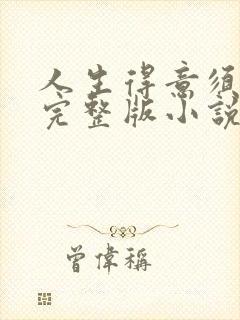 人生得意須
完整版小說
曾偉稱